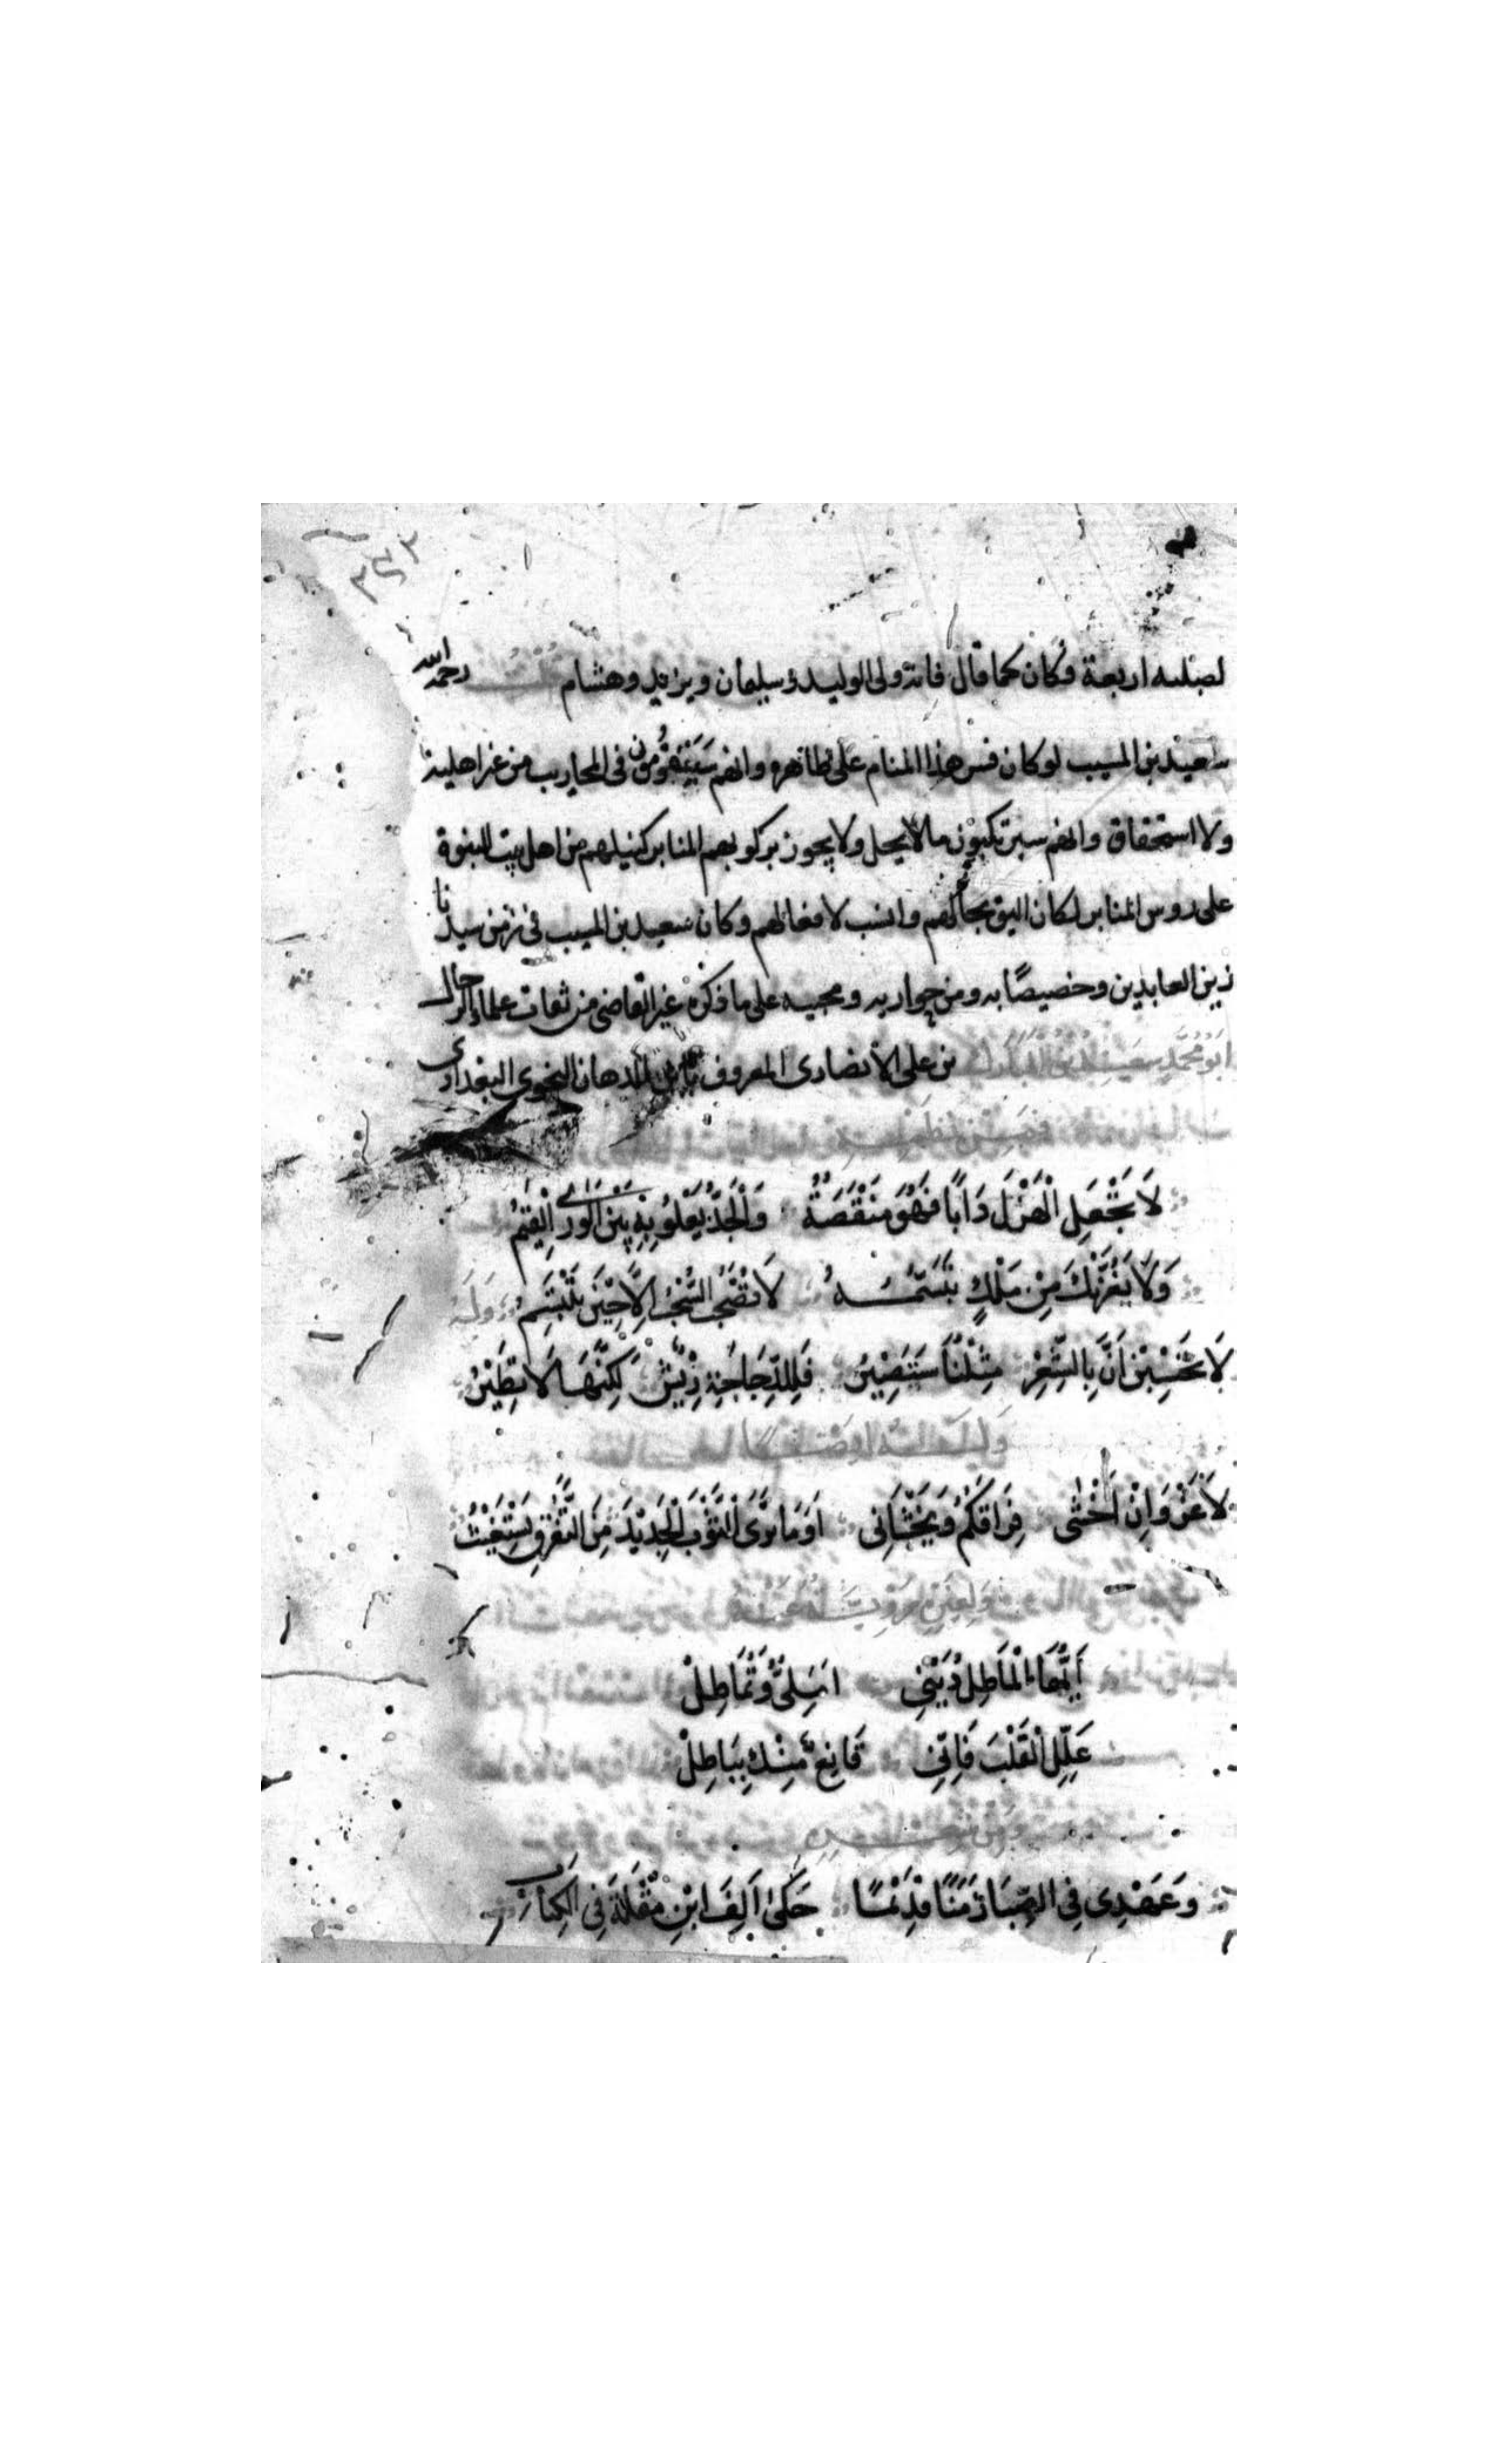 ٣٤٢
لصلبه اربعة فكان كما قال فانه ولى الوليد وسليمان ويزيد وهشام قلت رحمه الله
سعيد بن المسيب لو كان فسر هذا المنام على ظاهره وانهم سيتقومون فى المحاريب من غير اهلية
ولا استحقاق وانهم سيرتكبون ما لا يحل ولا يجوز بركوبهم المنابر كنيلهم من اهل بيت النبوة
على روس المنابر لكان اليق بحالهم وانسب لافعالهم وكان سعيد بن المسيب فى زمن سيدنا
زين العابدين وخصيصًا به ومن حواريه ومحبيه على ما ذكره غير القاضى من ثقات علماء الرجال
ابو محمد سعيد بن المبارك بن على الانصارى المعروف بابن الدهان النحوى البغدادى
فمن نظمه
لَا تَجْعَلِ الْهَزْلَ دَابًا فَهُوَ مَنْقَصَةٌ وَالْجَدُّ يَعْلُو بِهِ بَيْنَ الْوَرَى الْقِيَمُ
وَلَا يَغُرَّنْكَ مِنْ مَلِكٍ تَبَسُّمُهُ لَا تَضْحَى السُّحْبُ اِلَّا حِيْنَ تَبْتَسِمُ وله
لَا تَحْسِبَنْ اَنَّ بِالشِّعْرِ مِثْلَنَا سَتَصِيْرُ فَلِلدَّجَاجَةِ رِيْشٌ لَكِنَّهَا لَا تَطِيْرُ
لَا غَرْوَ اِنْ اَخْشَى فِرَاقَكُمْ وَيَخْشَانِى اَوَمَا تَرَى الثَّوْبَ الْجَدِيْدَ مِنَ التَّفَرُّقِ يَسْتَغِيْثُ
اَيُّهَا الْمَاطِلُ دَيْنِى اَمَلِىٌّ وَتُمَاطِلْ
عَلِّلِ الْقَلْبَ فَاِنِّى قَانِعٌ مِنْكَ بِبَاطِلْ
وَعَهْدِى فِى الصِّبَا زَمَنًا وَقَدِّى حَكَى اَلِفَ ابْنِ مُقْلَةَ فِى الْكِتَابِ